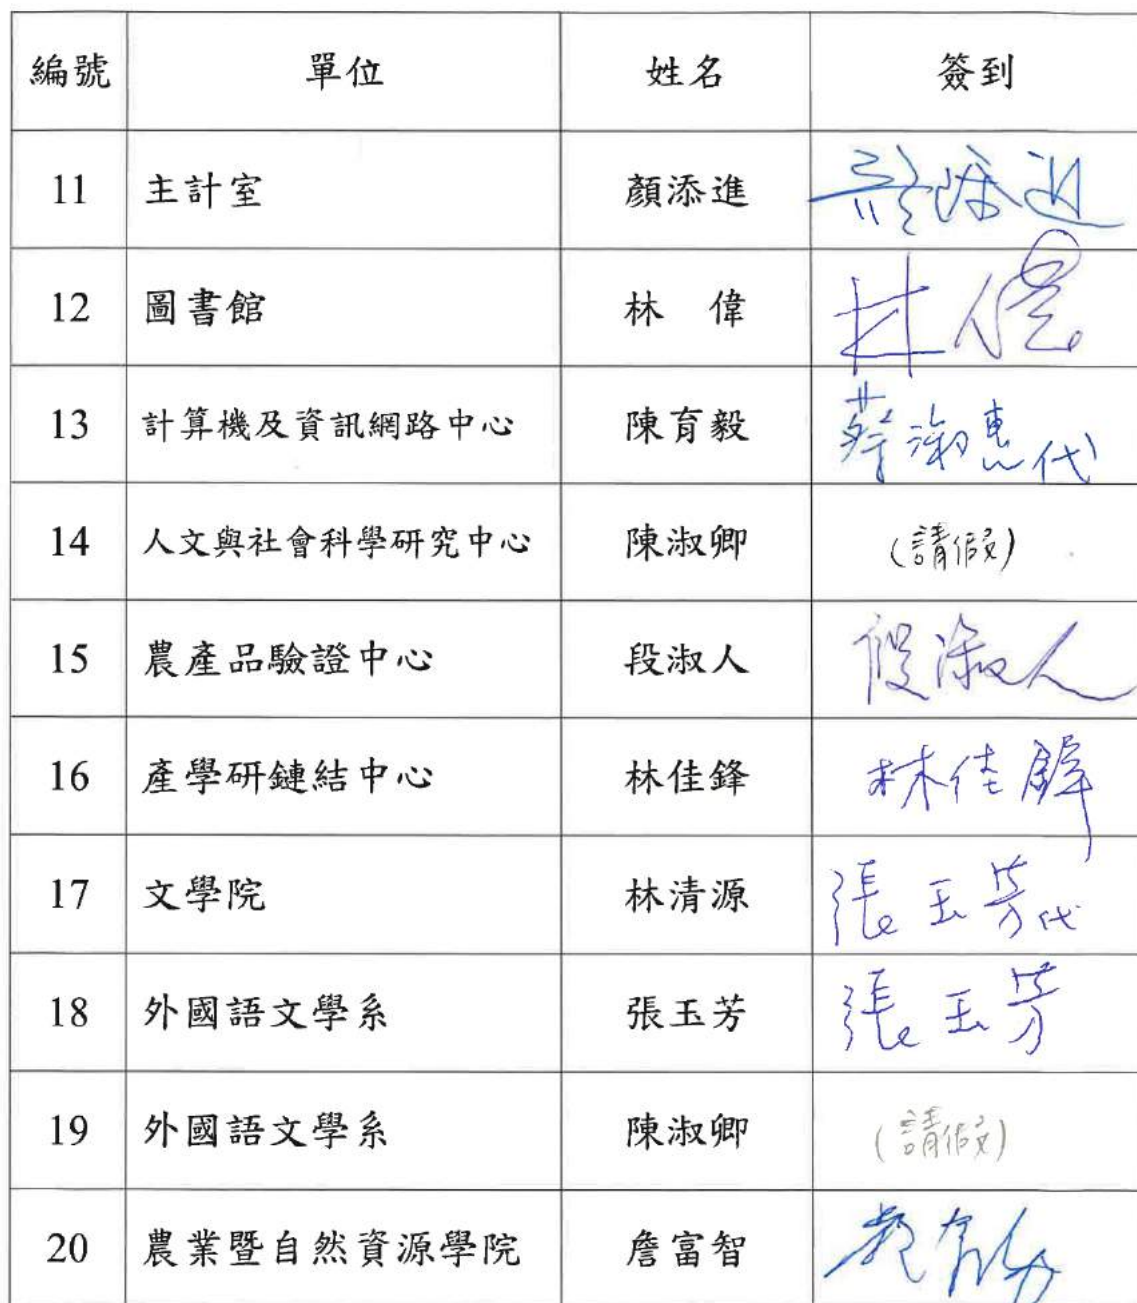 編號 單位 姓名 簽到
11 主計室 顏添進
12 圖書館 林 偉 林偉
13 計算機及資訊網路中心 陳育毅 蔡淑惠代
14 人文與社會科學研究中心 陳淑卿 (請假)
15 農產品驗證中心 段淑人 段淑人
16 產學研鏈結中心 林佳鋒 林佳鋒
17 文學院 林清源 張玉芳代
18 外國語文學系 張玉芳 張玉芳
19 外國語文學系 陳淑卿 (請假)
20 農業暨自然資源學院 詹富智